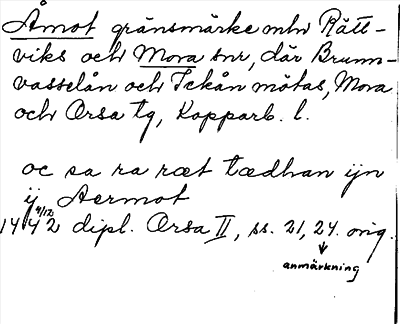 Åmot gränsmärke mln Rätt-
viks och Mora snr, där Brunn-
vasselån och Ickån mötas, Mora
och Orsa tg, Kopparb. l.
oc sa ra ræt tædhan ijn
ÿ Aermot
4/12
1442 dipl. Orsa II, ss. 21, 24. orig.
↓
anmärkning